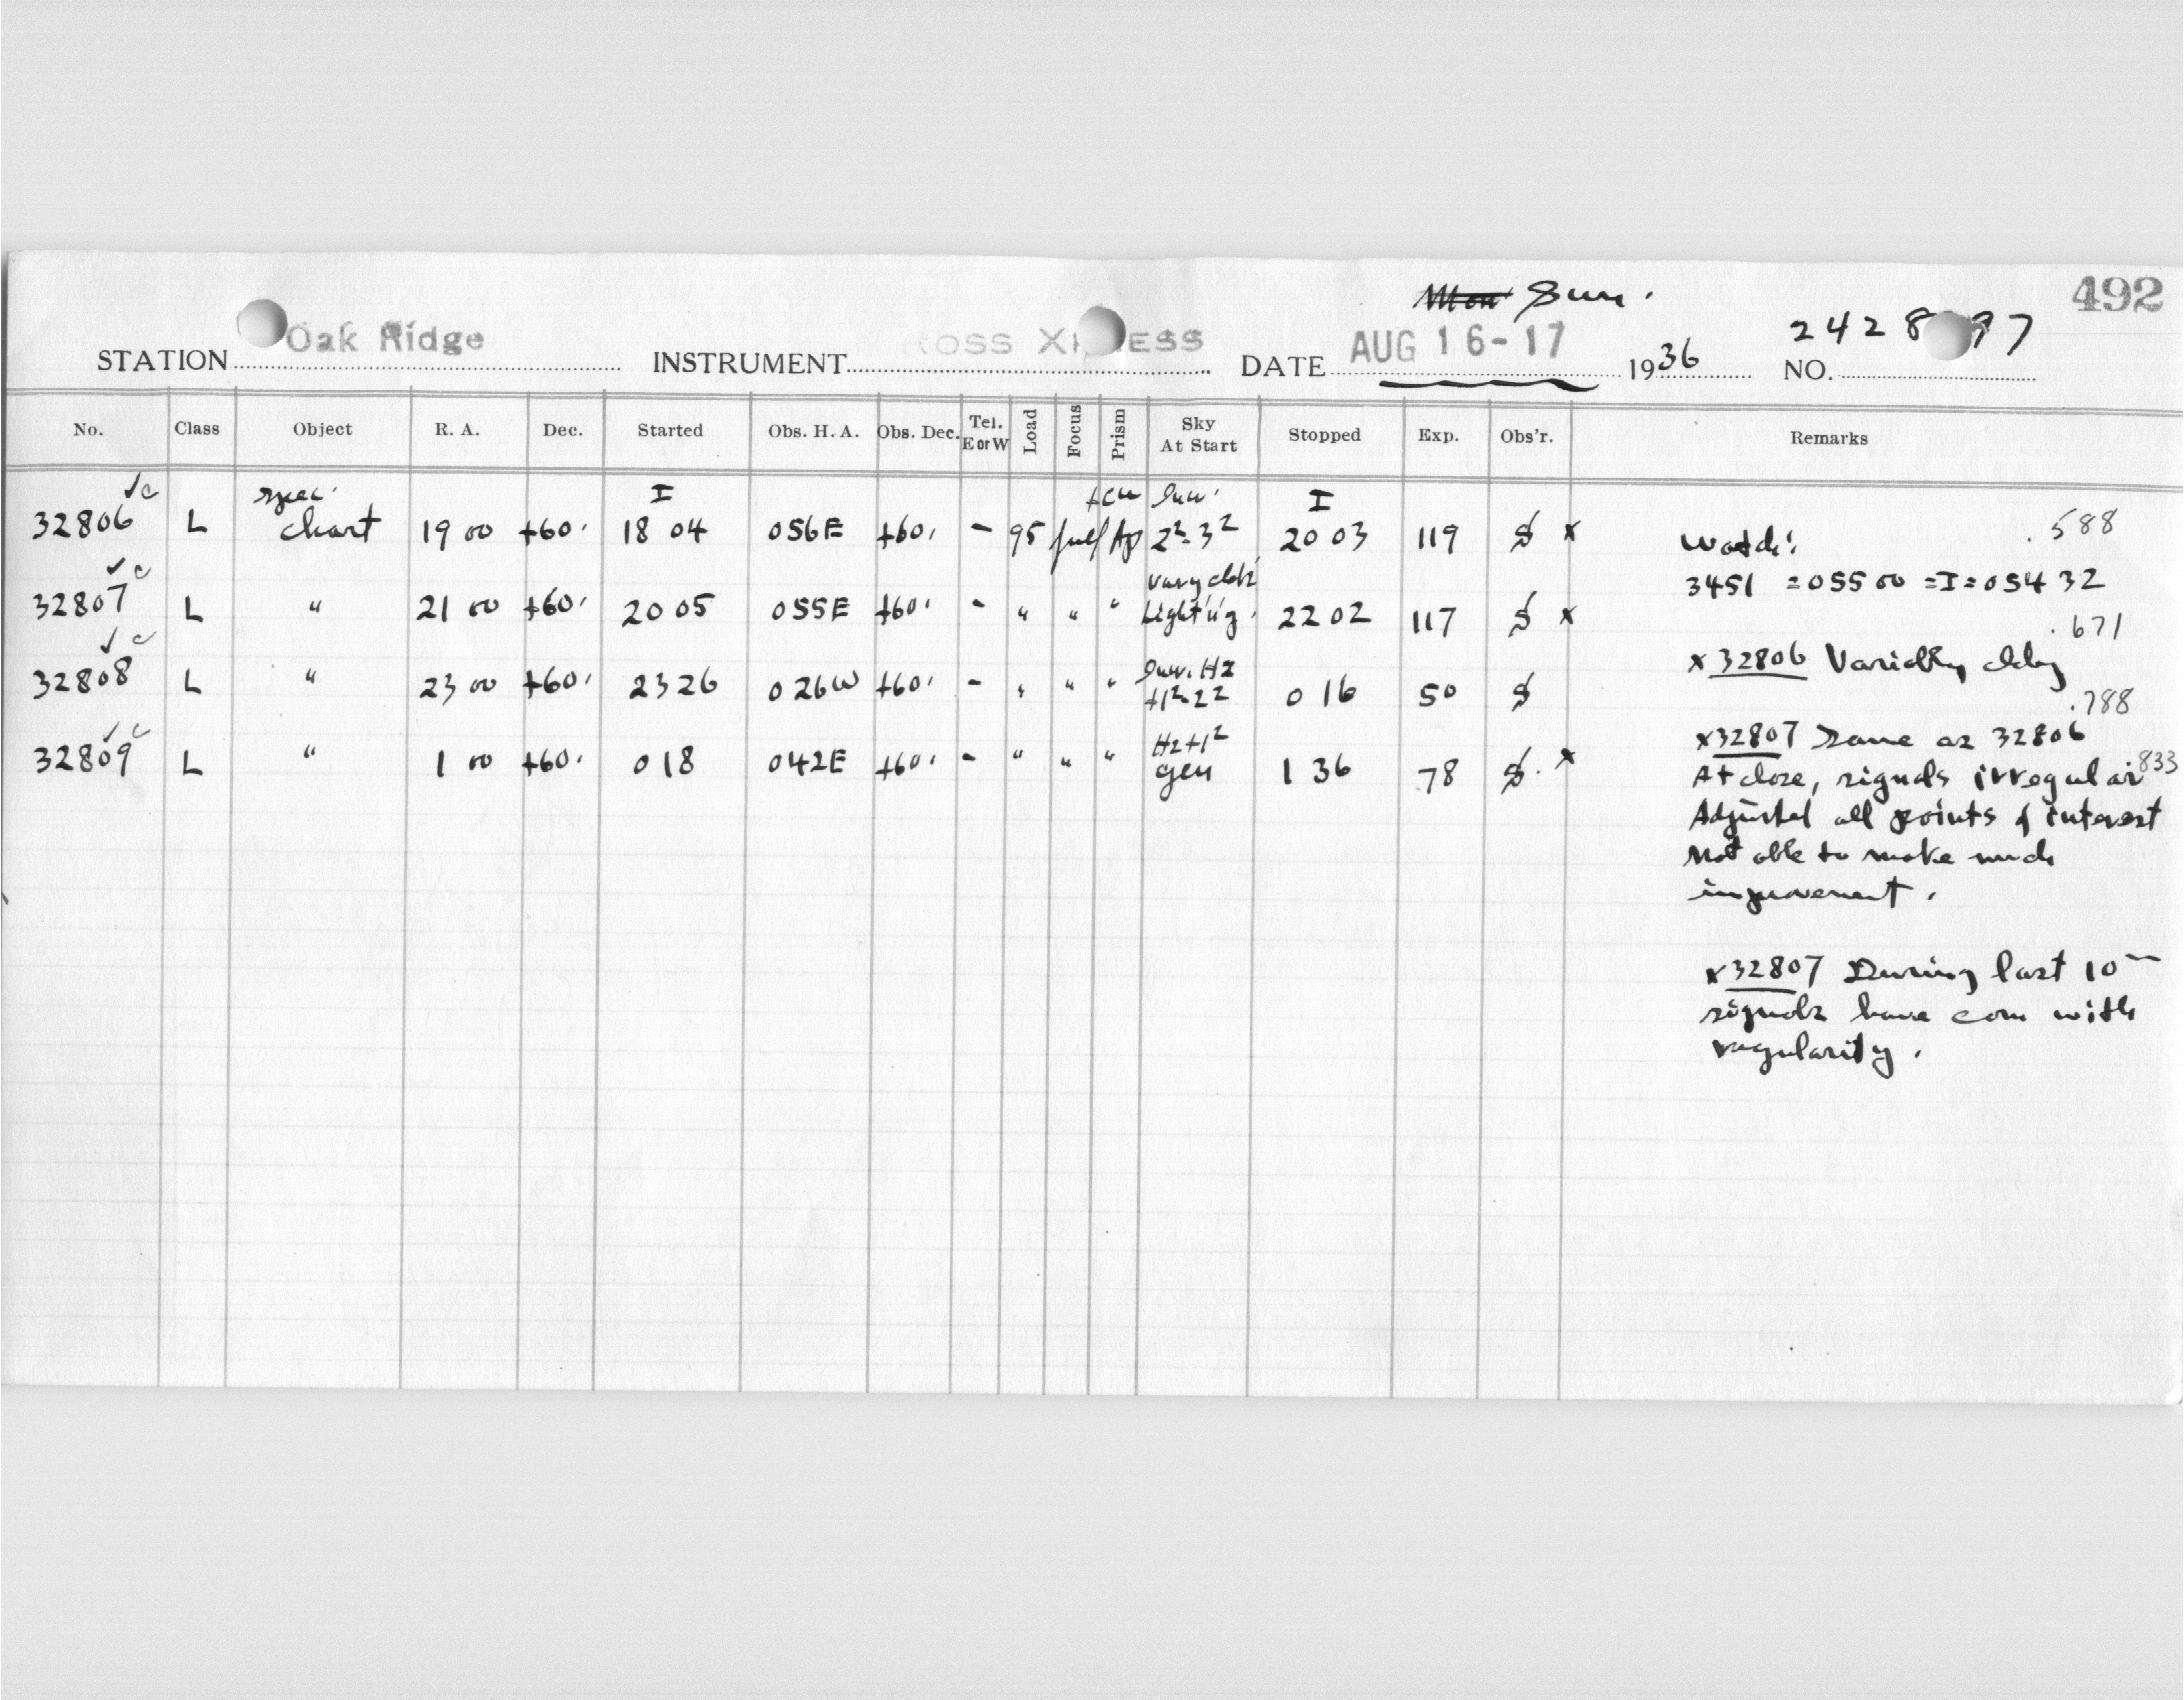 492
Mon Sun.
STATION Oak Ridge INSTRUMENT ROSS X ESS DATE AUG 16-17 1936 NO. 2428 97
No. Class Object R. A. Dec. Started Obs. H. A. Obs. Dec. Tel. E or W Load Focus Prism Sky At Start Stopped Exp. Obs'r. Remarks
✓c spec. I I
32806 L chart 19 00 +60. 18 04 056E +60. - 95 full Ap 2²-3² 20 03 119 $ x
✓c
32807 L " 21 00 +60. 20 05 055E +60. - " " " Light'n'g. 22 02 117 $ x
✓c Hz
32808 L " 23 00 +60. 23 26 026W +60. - " " " +1²-2² 0 16 50 $
✓c Hz +1²
32809 L " 1 00 +60. 0 18 042E +60. - " " " gen 1 36 78 $. x
.588
Watch:
3451 = 0 55 00 = I = 0 54 32
.671
x 32806 Variable
.788
x 32807 Same as 32806
At close, signals irregular 833
Adjusted all points of interest
Not able to make much
improvement.
x 32807 During last 10m
signals have com with
regularity.